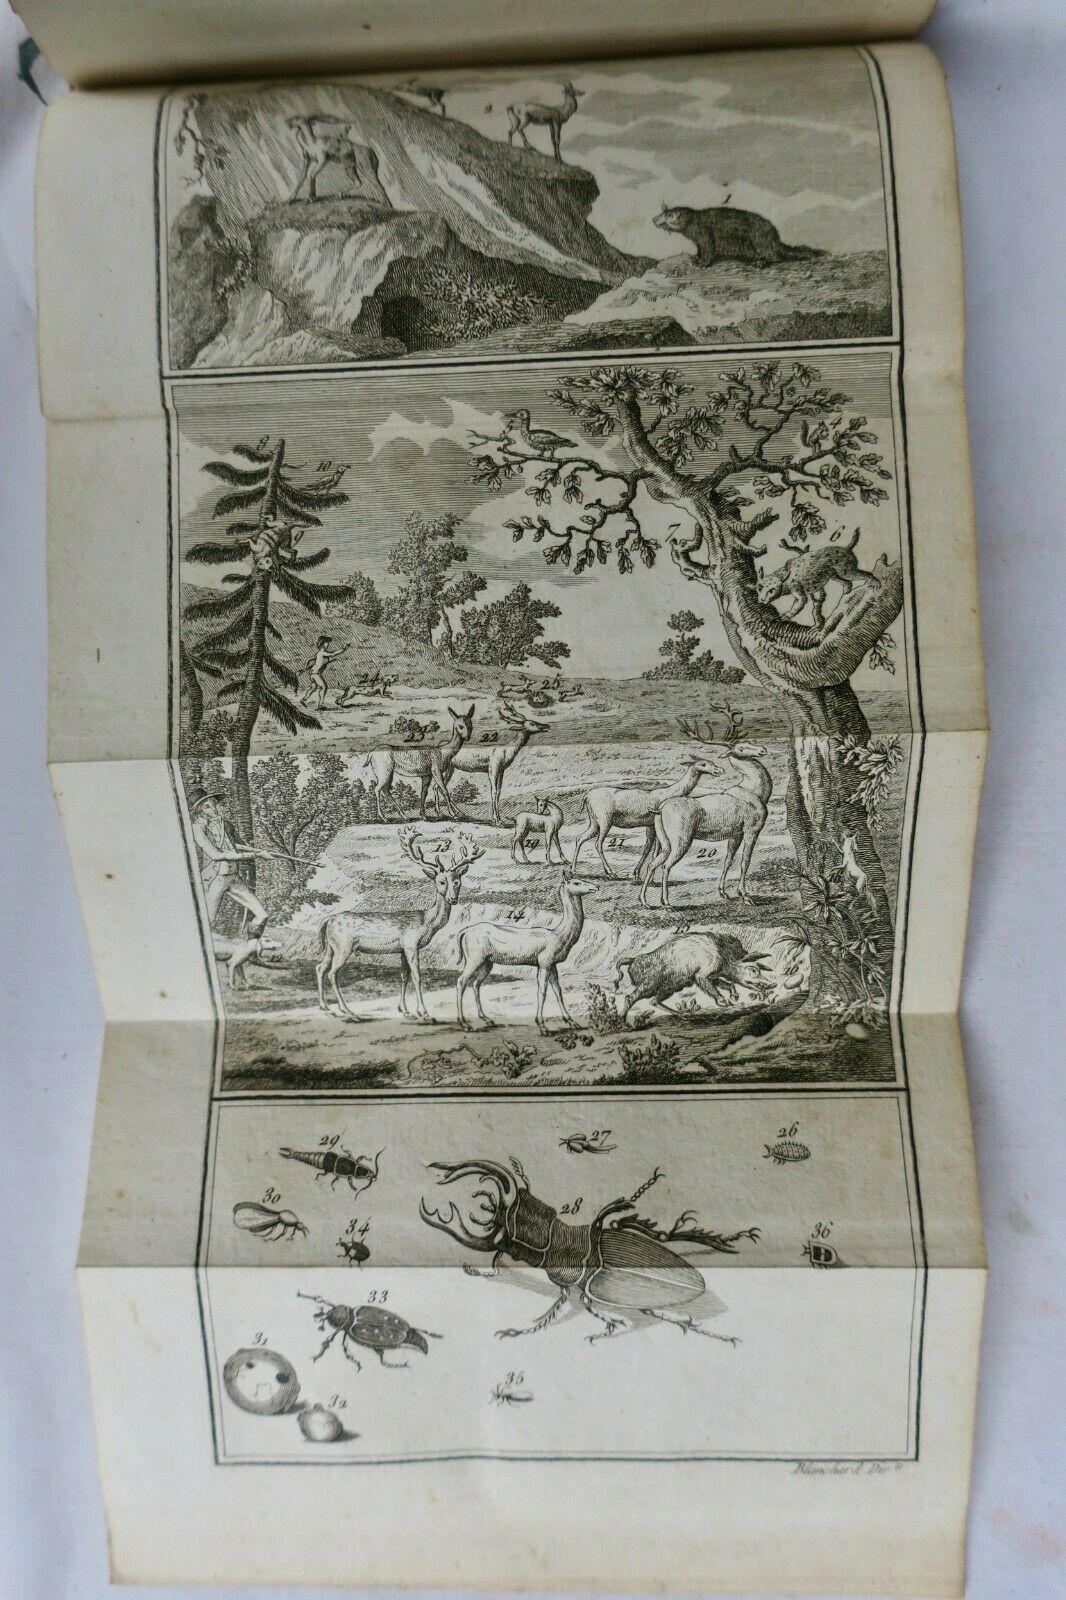 2
1
4
8
10
7
6
9
24
25
23
22
13
19
21
20
18
14
15
16
12
29
27
26
30
28
34
36
33
31
35
32
Blanchard Dir.